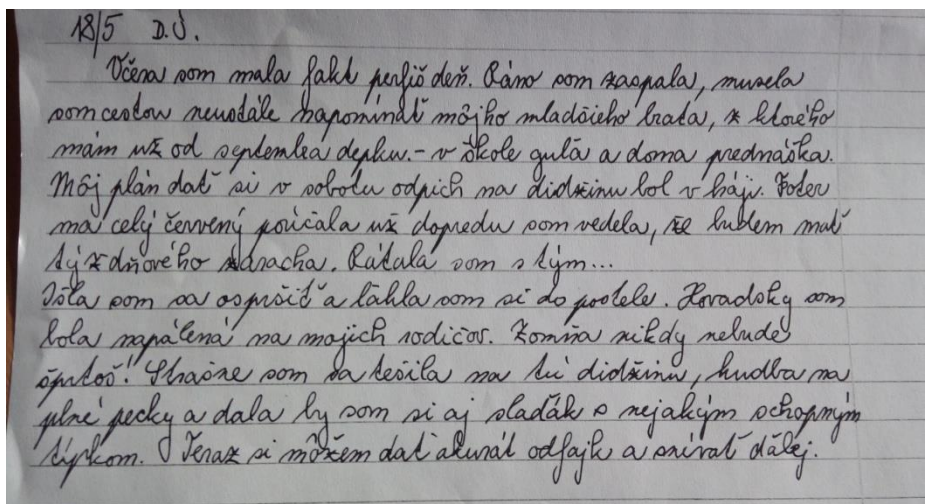 18/5 D.Ú.
Včera som mala fakt perfiš deň. Ráno som zaspala, musela
som cestou neustále napomínať môjho mladšieho brata, z ktorého
mám už od septembra depku. - v škole guľa a doma prednáška.
Môj plán dať si v sobotu odpich na didžinu bol v háji. Foter
ma celý červený poúčal a už dopredu som vedela, že budem mať
týždňového zaracha. Rátala som s tým...
Išla som sa ospršiť a ľahla som si do postele. Hovadsky som
bola napálená na mojich rodičov. Zomňa nikdy nebude
šprtoš! Strašne som sa tešila na tú didžinu, hudba na
plné pecky a dala by som si aj slaďák s nejakým schopným
týpkom. Teraz si môžem dať akurát odfajk a snívať ďalej.